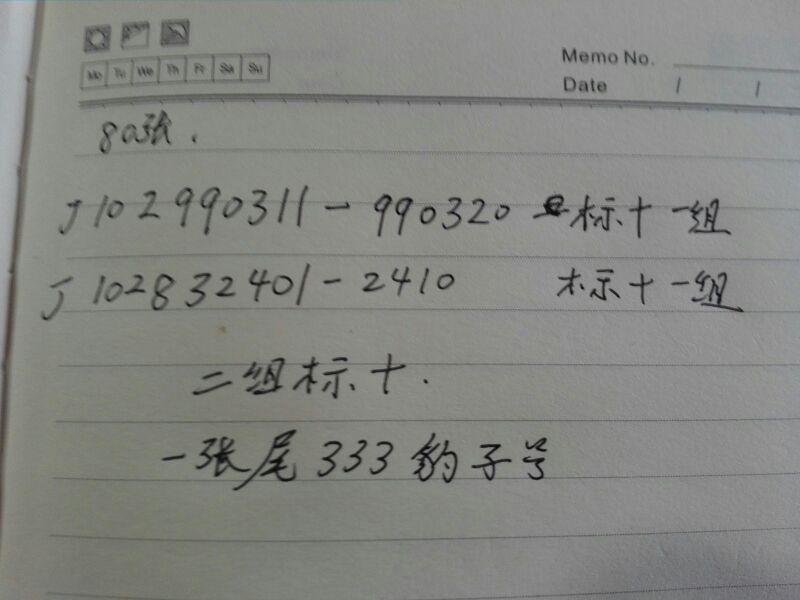 Mo Tu We Th Fr Sa Su
Memo No.
Date / /
80张.
J102990311-990320 标十一组
J102832401-2410 标十一组
二组标十.
一张尾333豹子号